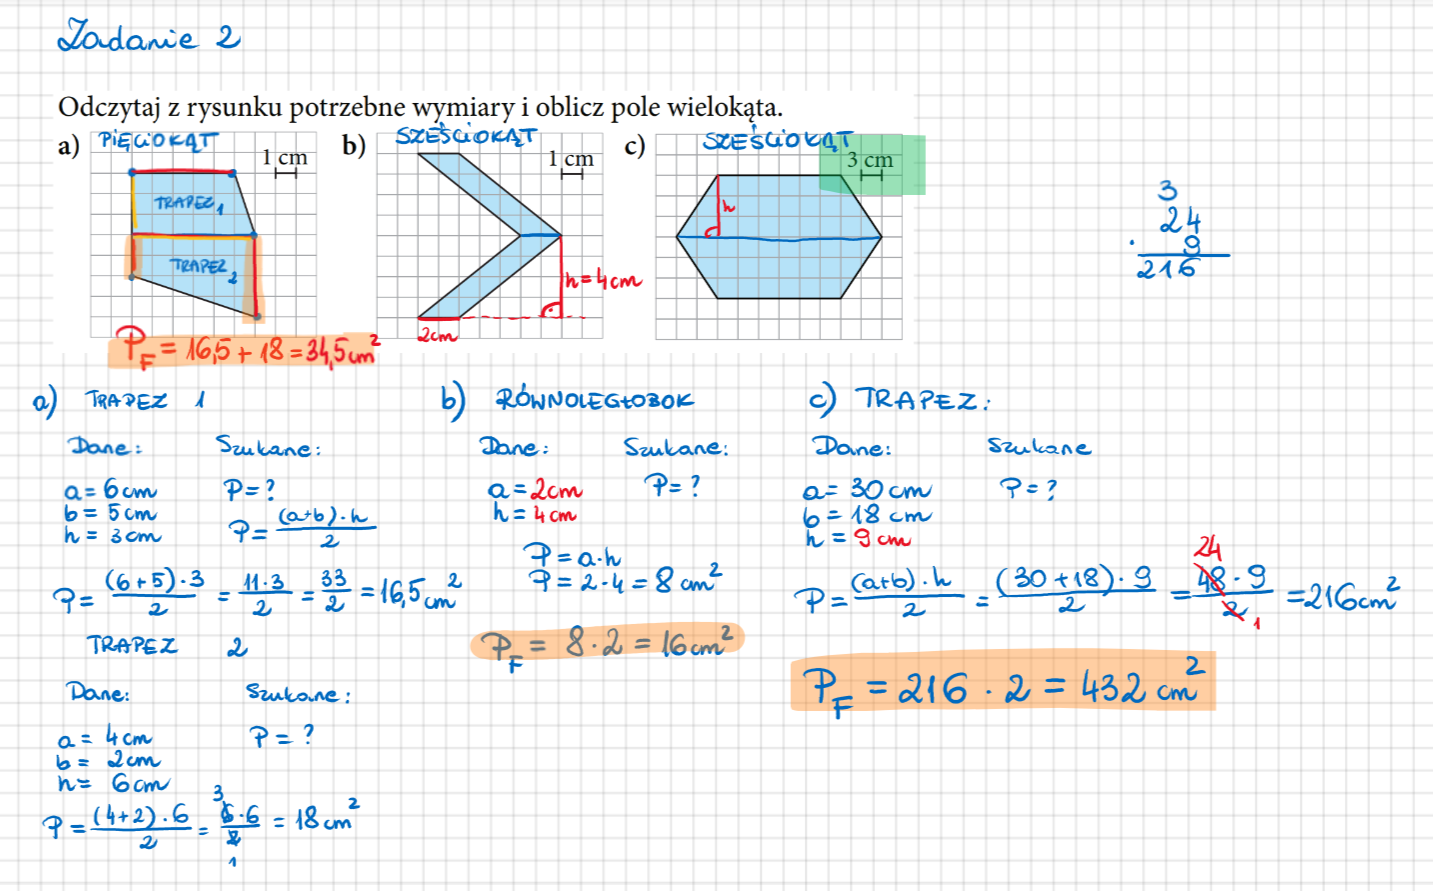 Zadanie 2
Odczytaj z rysunku potrzebne wymiary i oblicz pole wielokąta.
a) PIĘCIOKĄT 1 cm
TRAPEZ 1
TRAPEZ 2
P_F = 16,5 + 18 = 34,5 cm²
b) SZEŚCIOKĄT 1 cm
h = 4cm
2cm
c) SZEŚCIOKĄT 3 cm
h
3
24
· 9
216
a) TRAPEZ 1
Dane: Szukane:
a = 6 cm P = ?
b = 5 cm
h = 3 cm P = (a+b)·h / 2
P = (6+5)·3 / 2 = 11·3 / 2 = 33 / 2 = 16,5 cm²
TRAPEZ 2
Dane: Szukane:
a = 4 cm P = ?
b = 2 cm
h = 6 cm
3
P = (4+2)·6 / 2 = 6·6 / 2 = 18 cm²
1
b) RÓWNOLEGŁOBOK
Dane: Szukane:
a = 2cm P = ?
h = 4 cm
P = a·h
P = 2·4 = 8 cm²
P_F = 8·2 = 16 cm²
c) TRAPEZ:
Dane: Szukane
a = 30 cm P = ?
b = 18 cm
h = 9 cm
24
P = (a+b)·h / 2 = (30+18)·9 / 2 = 48·9 / 2 = 216 cm²
1
P_F = 216 · 2 = 432 cm²